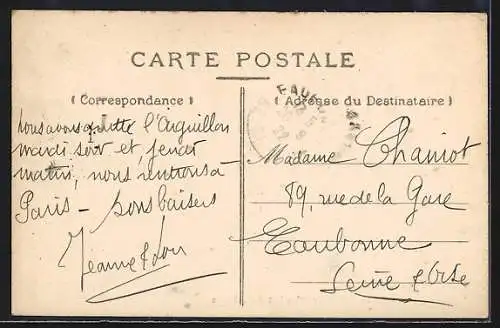 CARTE POSTALE
( Correspondance )
( Adresse du Destinataire )
nous avons quitté l'Aiguillon
mardi soir et, jeudi
matin, nous rentrons à
Paris - bons baisers
Jeanne &
Madame Chaniot
89, rue de la Gare
Eaubonne
Seine & Oise